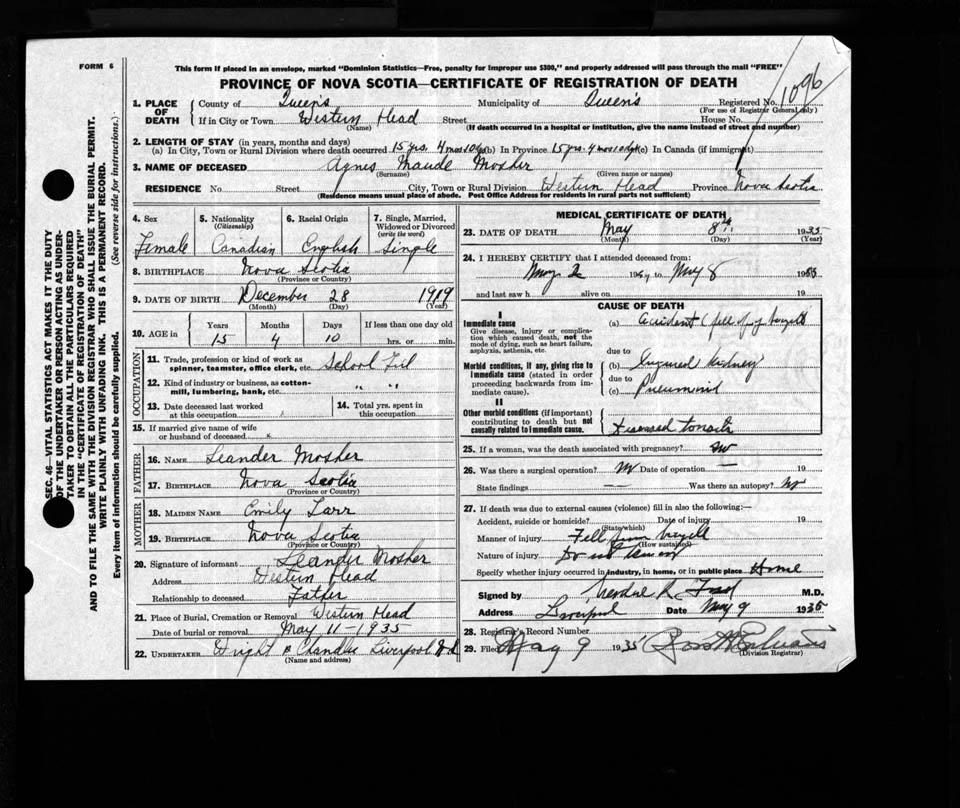 FORM 6
This form if placed in an envelope, marked "Dominion Statistics—Free, penalty for improper use $300," and properly addressed will pass through the mail "FREE"
PROVINCE OF NOVA SCOTIA—CERTIFICATE OF REGISTRATION OF DEATH
1096
1. PLACE OF DEATH County of Queen's Municipality of Queen's Registered No.
(For use of Registrar General only)
If in City or Town Western Head Street House No.
(Name) (If death occurred in a hospital or institution, give the name instead of street and number)
2. LENGTH OF STAY (in years, months and days)
(a) In City, Town or Rural Division where death occurred 15 yrs. 4 mos 10 dys (b) In Province 15 yrs. 4 mos 10 dys (c) In Canada (if immigrant)
3. NAME OF DECEASED Agnes Maude Mosher
(Surname) (Given name or names)
RESIDENCE No. Street City, Town or Rural Division Western Head Province Nova Scotia
(Residence means usual place of abode. Post Office Address for residents in rural parts not sufficient)
SEC. 46—VITAL STATISTICS ACT MAKES IT THE DUTY
OF THE UNDERTAKER OR PERSON ACTING AS UNDER-
TAKER TO OBTAIN ALL THE PARTICULARS REQUIRED
IN THE "CERTIFICATE OF REGISTRATION OF DEATH"
AND TO FILE THE SAME WITH THE DIVISION REGISTRAR WHO SHALL ISSUE THE BURIAL PERMIT.
WRITE PLAINLY WITH UNFADING INK. THIS IS A PERMANENT RECORD.
Every item of information should be carefully supplied. (See reverse side for instructions.)
4. Sex 5. Nationality (Citizenship) 6. Racial Origin 7. Single, Married, Widowed or Divorced (write the word)
Female Canadian English Single
8. BIRTHPLACE Nova Scotia
(Province or Country)
9. DATE OF BIRTH December 28 1919
(Month) (Day) (Year)
10. AGE in Years Months Days If less than one day old
15 4 10 hrs. or min.
OCCUPATION
11. Trade, profession or kind of work as
spinner, teamster, office clerk, etc. School
12. Kind of industry or business, as cotton-
mill, lumbering, bank, etc. " "
13. Date deceased last worked
at this occupation
14. Total yrs. spent in
this occupation
15. If married give name of wife
or husband of deceased x
FATHER
16. NAME Leander Mosher
17. BIRTHPLACE Nova Scotia
(Province or Country)
MOTHER
18. MAIDEN NAME Emily Tarr
19. BIRTHPLACE Nova Scotia
(Province or Country)
20. Signature of informant Leander Mosher
Address Western Head
Relationship to deceased Father
21. Place of Burial, Cremation or Removal Western Head
Date of burial or removal May 11—1935
22. UNDERTAKER Wright & Chandler Liverpool
(Name and address)
MEDICAL CERTIFICATE OF DEATH
23. DATE OF DEATH May 8th 1935
(Month) (Day) (Year)
24. I HEREBY CERTIFY that I attended deceased from:
May 2 19 to May 8 1935
and last saw h alive on 19
CAUSE OF DEATH
I
Immediate cause
Give disease, injury or complica-
tion which caused death, not the
mode of dying, such as heart failure,
asphyxia, asthenia, etc.
(a) accident (fell
due to
Morbid conditions, if any, giving rise to
immediate cause (stated in order
proceeding backwards from im-
mediate cause).
(b) Injured Kidney
due to
(c) Pneumonia
II
Other morbid conditions (if important)
contributing to death but not
causally related to immediate cause.
25. If a woman, was the death associated with pregnancy? no
26. Was there a surgical operation? no Date of operation 19
State findings Was there an autopsy? no
27. If death was due to external causes (violence) fill in also the following:—
Accident, suicide or homicide? Date of injury 19
(State which)
Manner of injury Fell from bicycle
(How sustained)
Nature of injury
Specify whether injury occurred in industry, in home, or in public place Home
Signed by M.D.
Address Liverpool Date May 9 1935
28. Registrar's Record Number
29. Filed May 9 1935
(Division Registrar)